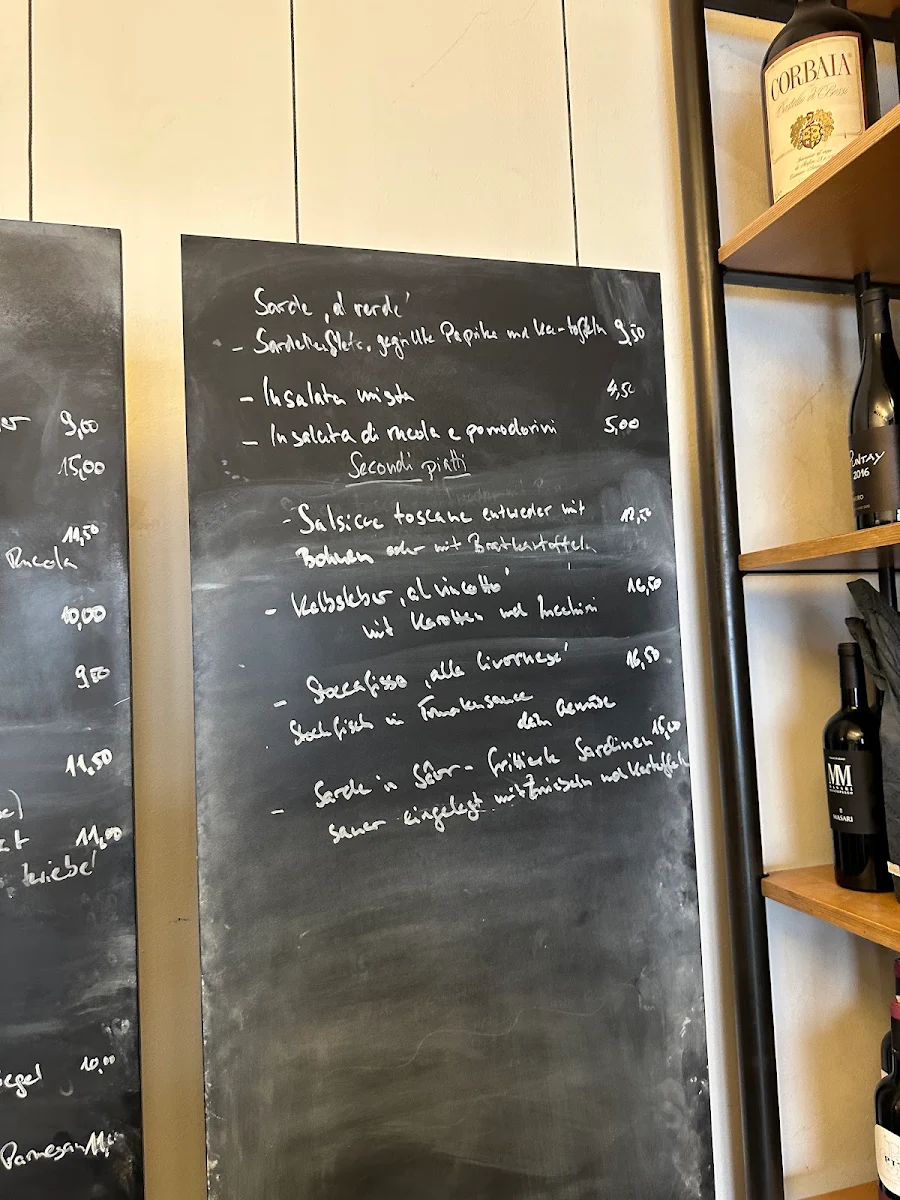 er 9,00
15,00
11,50
Rucola
10,00
9,00
11,50
11,00
10,00
Parmesan 11,
Sarde „al verde‘
- Sardellenfilets, gegrillte Paprika und Kartoffeln 9,50
- Insalata mista 4,50
- Insalata di rucola e pomodorini 5,00
Secondi piatti
- Salsicce toscane entweder mit 12,50
Bohnen oder mit Bratkartoffeln
- Kalbsleber „al vincotto‘ 16,50
mit Karotten und Zucchini
- Stoccafisso „alla livornese‘ 16,50
Stockfisch in Tomatensauce
dazu Gemüse
- Sarde in Saor - frittierte Sardinen 15,00
sauer eingelegt mit Zwiebeln und Kartoffeln
CORBAIA
Castello di Bossi
2016
MM
MASARI
MASARI